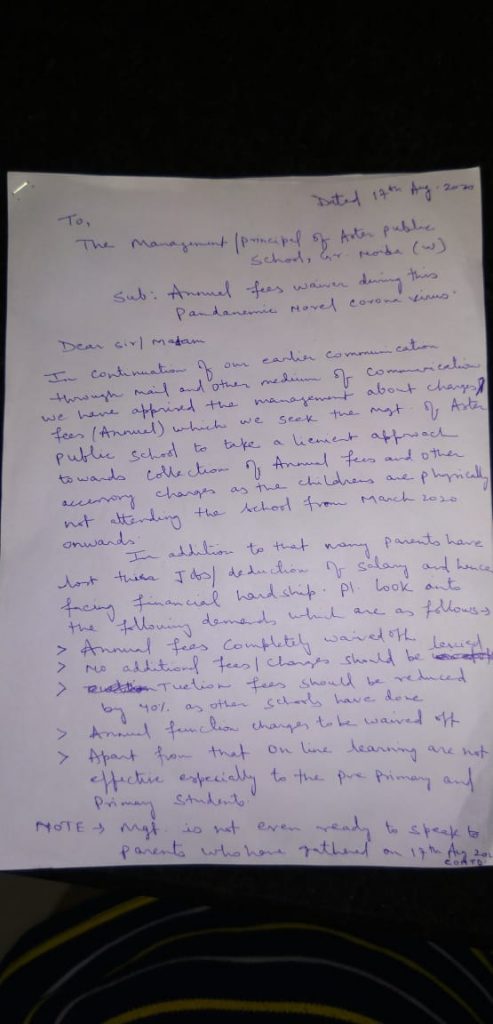 Dated 17th Aug. 2020
To,
The Management/principal of Aster public
School, Gr. Noida (W)
Sub: Annual fees waiver during this
Pandanemic Novel corona virus.
Dear Sir/ Madam
In continuation of our earlier communication
through mail and other medium of communication
we have apprised the management about charges/
fees (Annual) which we seek the mgt. of Aster
public school to take a lienient approach
towards collection of Annual fees and other
accessory charges as the childrens are physically
not attending the school from March 2020
onwards.
In addition to that many parents have
lost their Jobs/ deduction of salary and hence
facing financial hardship. Pl. look onto
the following demands which are as follows→
> Annual fees completely waived off
> No additional fees/charges should be levied
> Tuetion fees should be reduced
by 40% as other schools have done
> Annual function charges to be waived off
> Apart from that on line learning are not
effective especially to the pre primary and
Primary students.
NOTE → Mgt. is not even ready to speak to
parents who have gathered on 17th Aug 202
CONTD